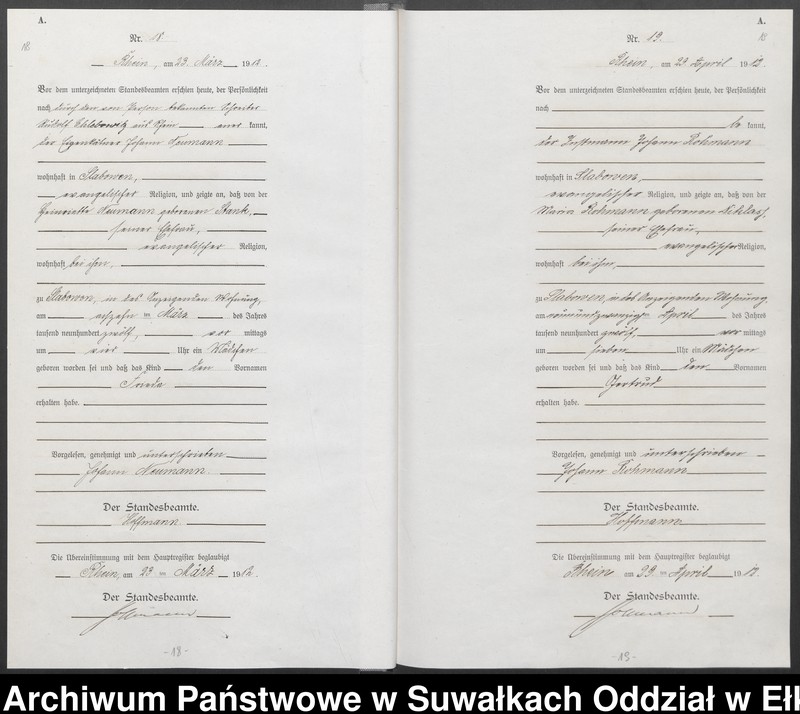 A.
Nr. 18
18
Rhein, am 23. März 1912.
Vor dem unterzeichneten Standesbeamten erschien heute, der Persönlichkeit
nach durch den von Person bekannten Schreiber
Rudolf aus Rhein aner kannt,
der Eigenkätner Johann Neumann
wohnhaft in Slabowen,
evangelischer Religion, und zeigte an, daß von der
Henriette Neumann geborenen Stank,
seiner Ehefrau,
evangelischer Religion,
wohnhaft bei ihm,
zu Slabowen, in des Anzeigenden Wohnung,
am achzehn ten März des Jahres
tausend neunhundert zwölf, vor mittags
um vier Uhr ein Mädchen
geboren worden sei und daß das Kind den Vornamen
Frieda
erhalten habe.
Vorgelesen, genehmigt und unterschrieben
Johann Neumann.
Der Standesbeamte.
Hoffmann
Die Übereinstimmung mit dem Hauptregister beglaubigt
Rhein, am 23 ten März 1912.
Der Standesbeamte.
Hoffmann
-18-
A.
Nr. 19.
Rhein, am 23 April 1912
Vor dem unterzeichneten Standesbeamten erschien heute, der Persönlichkeit
nach
be kannt,
der Instmann Johann Rohmann
wohnhaft in Slabowen,
evangelischer Religion, und zeigte an, daß von der
Maria Rohmann geborenen
seiner Ehefrau,
evangelischer Religion,
wohnhaft bei ihm,
zu Slabowen, in des Anzeigenden Wohnung,
am April des Jahres
tausend neunhundert zwölf, vor mittags
um sieben Uhr ein Mädchen
geboren worden sei und daß das Kind den Vornamen
Gertrud
erhalten habe.
Vorgelesen, genehmigt und unterschrieben
Johann Rohmann
Der Standesbeamte.
Hoffmann
Die Übereinstimmung mit dem Hauptregister beglaubigt
Rhein am ten April 1912.
Der Standesbeamte.
Hoffmann
-19-
Archiwum Państwowe w Suwałkach Oddział w Ełk